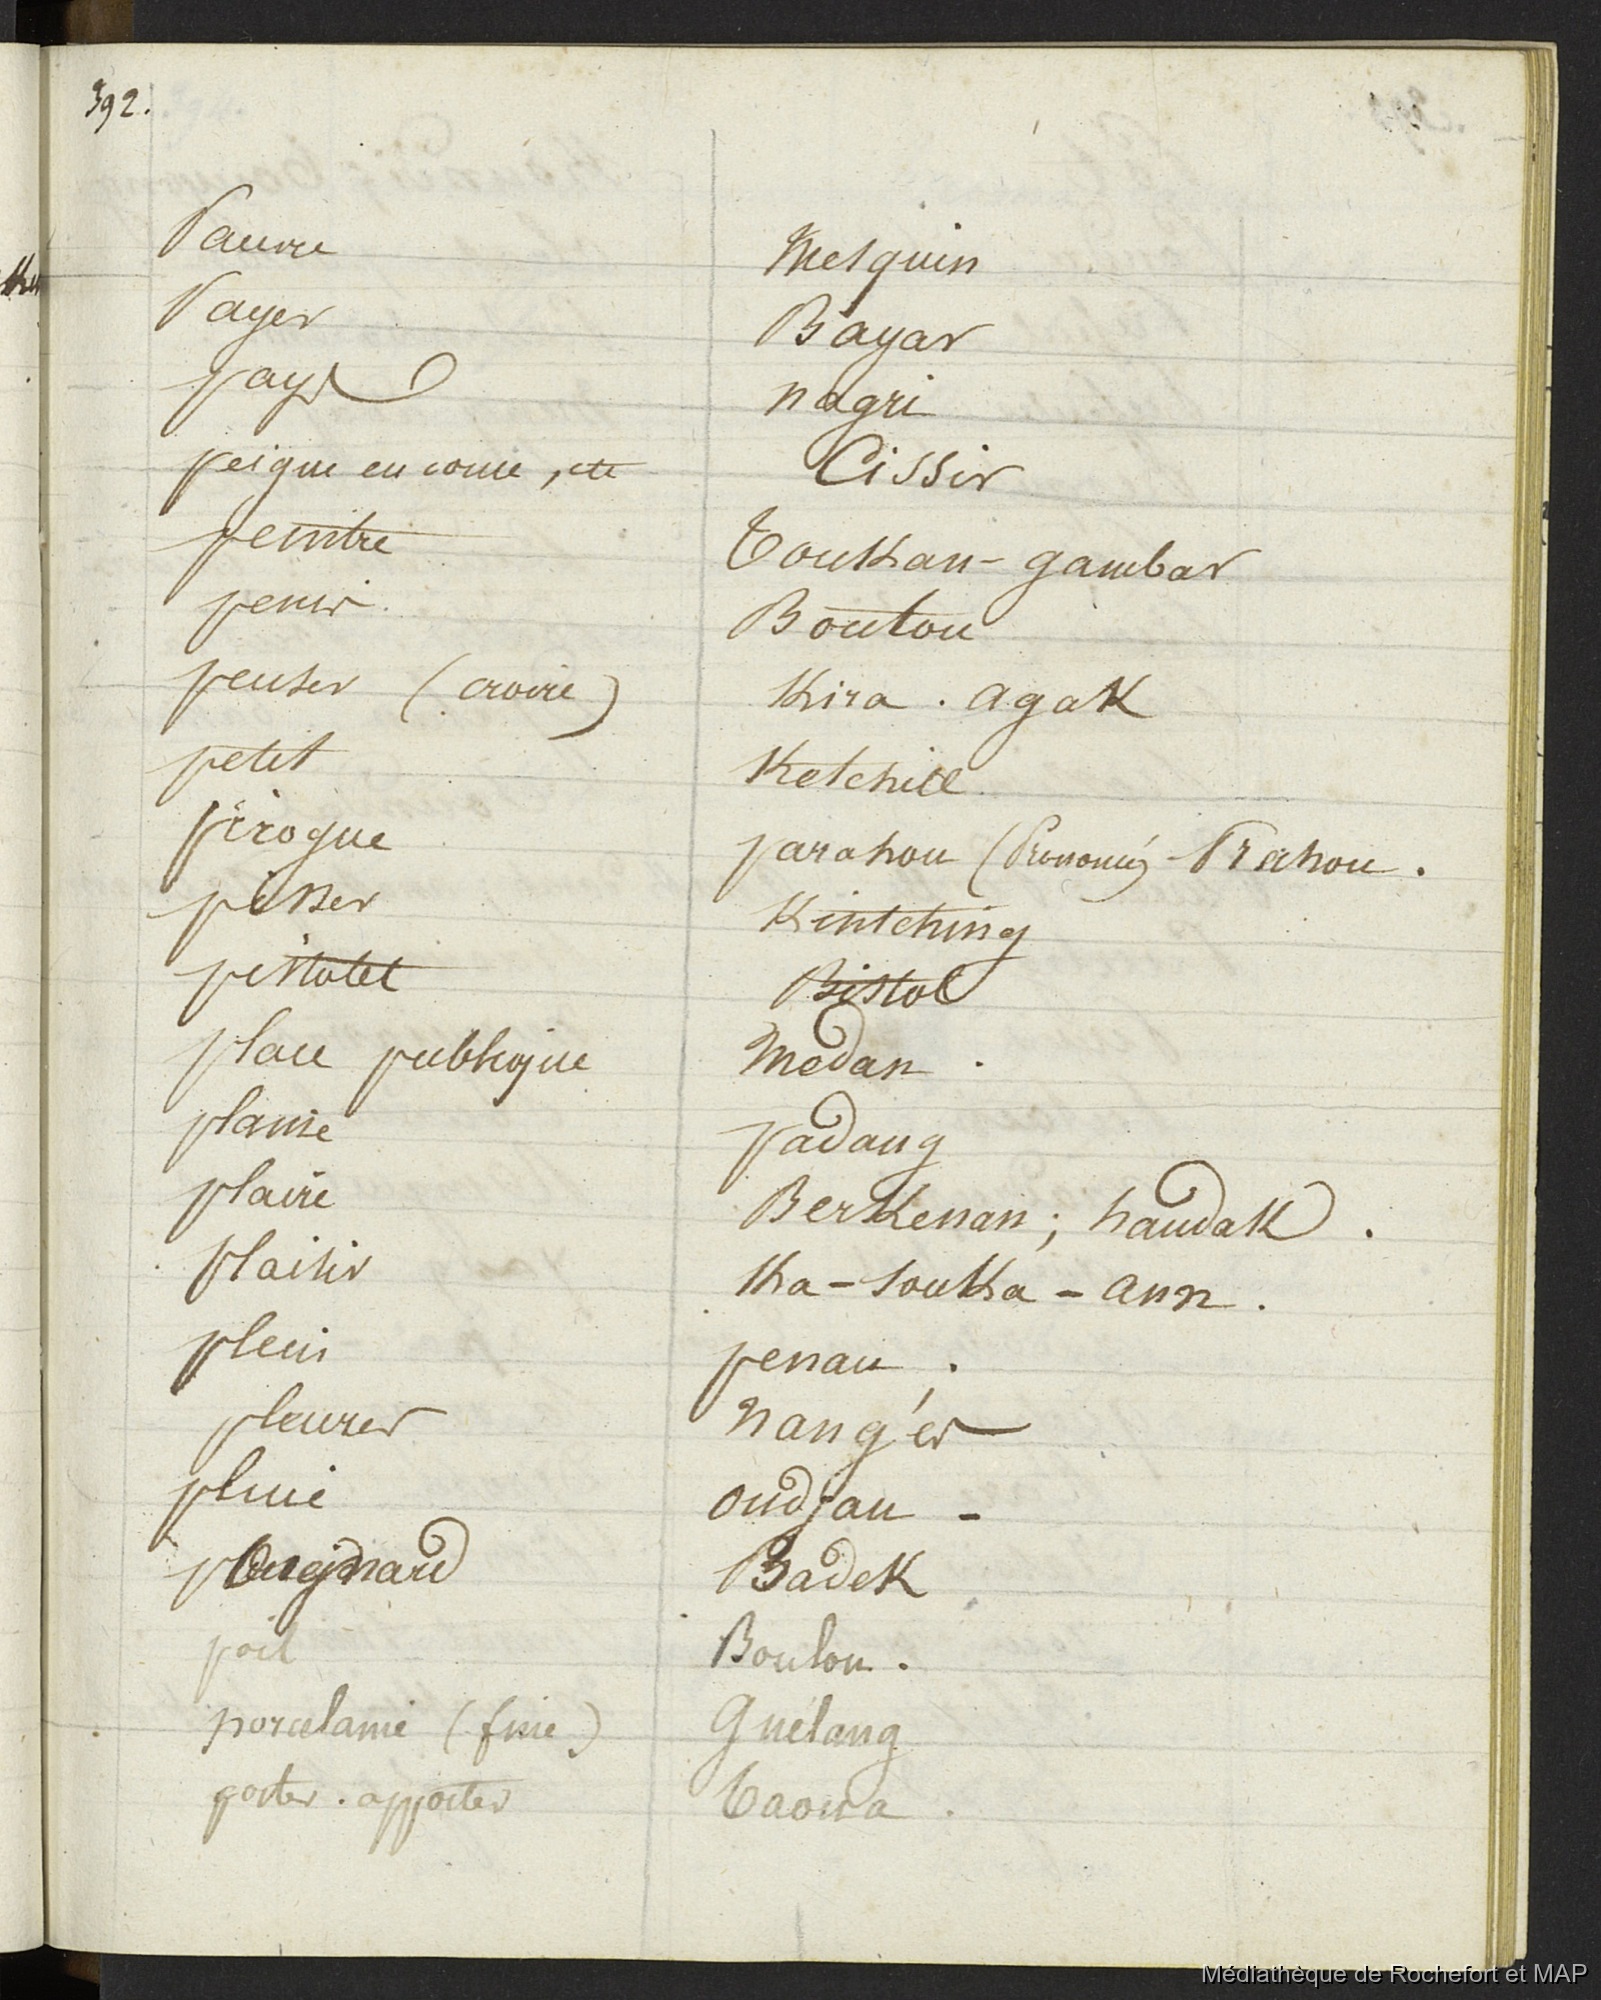 392.
Pauvre Mesquin
Payer Bayar
pays nagri
peigne en corne, etc Cissir
peintre Toukan - gambar
penis Boutou
penser (croire) Kira . agak
petit Ketchill
pirogue parahou (Prononcé) Prahou.
pisser Kintching
pistolet Bistol
place publique Medan.
plaine padang
plaire Berkenan; handak.
plaisir Ka - souka - ann.
plein penau.
pleurer nang'er
pluie oudjan -
poignard Badek
poil Boulou.
porcelaine (fine) Guélang
porter. apporter Taowa.
Médiathèque de Rochefort et MAP